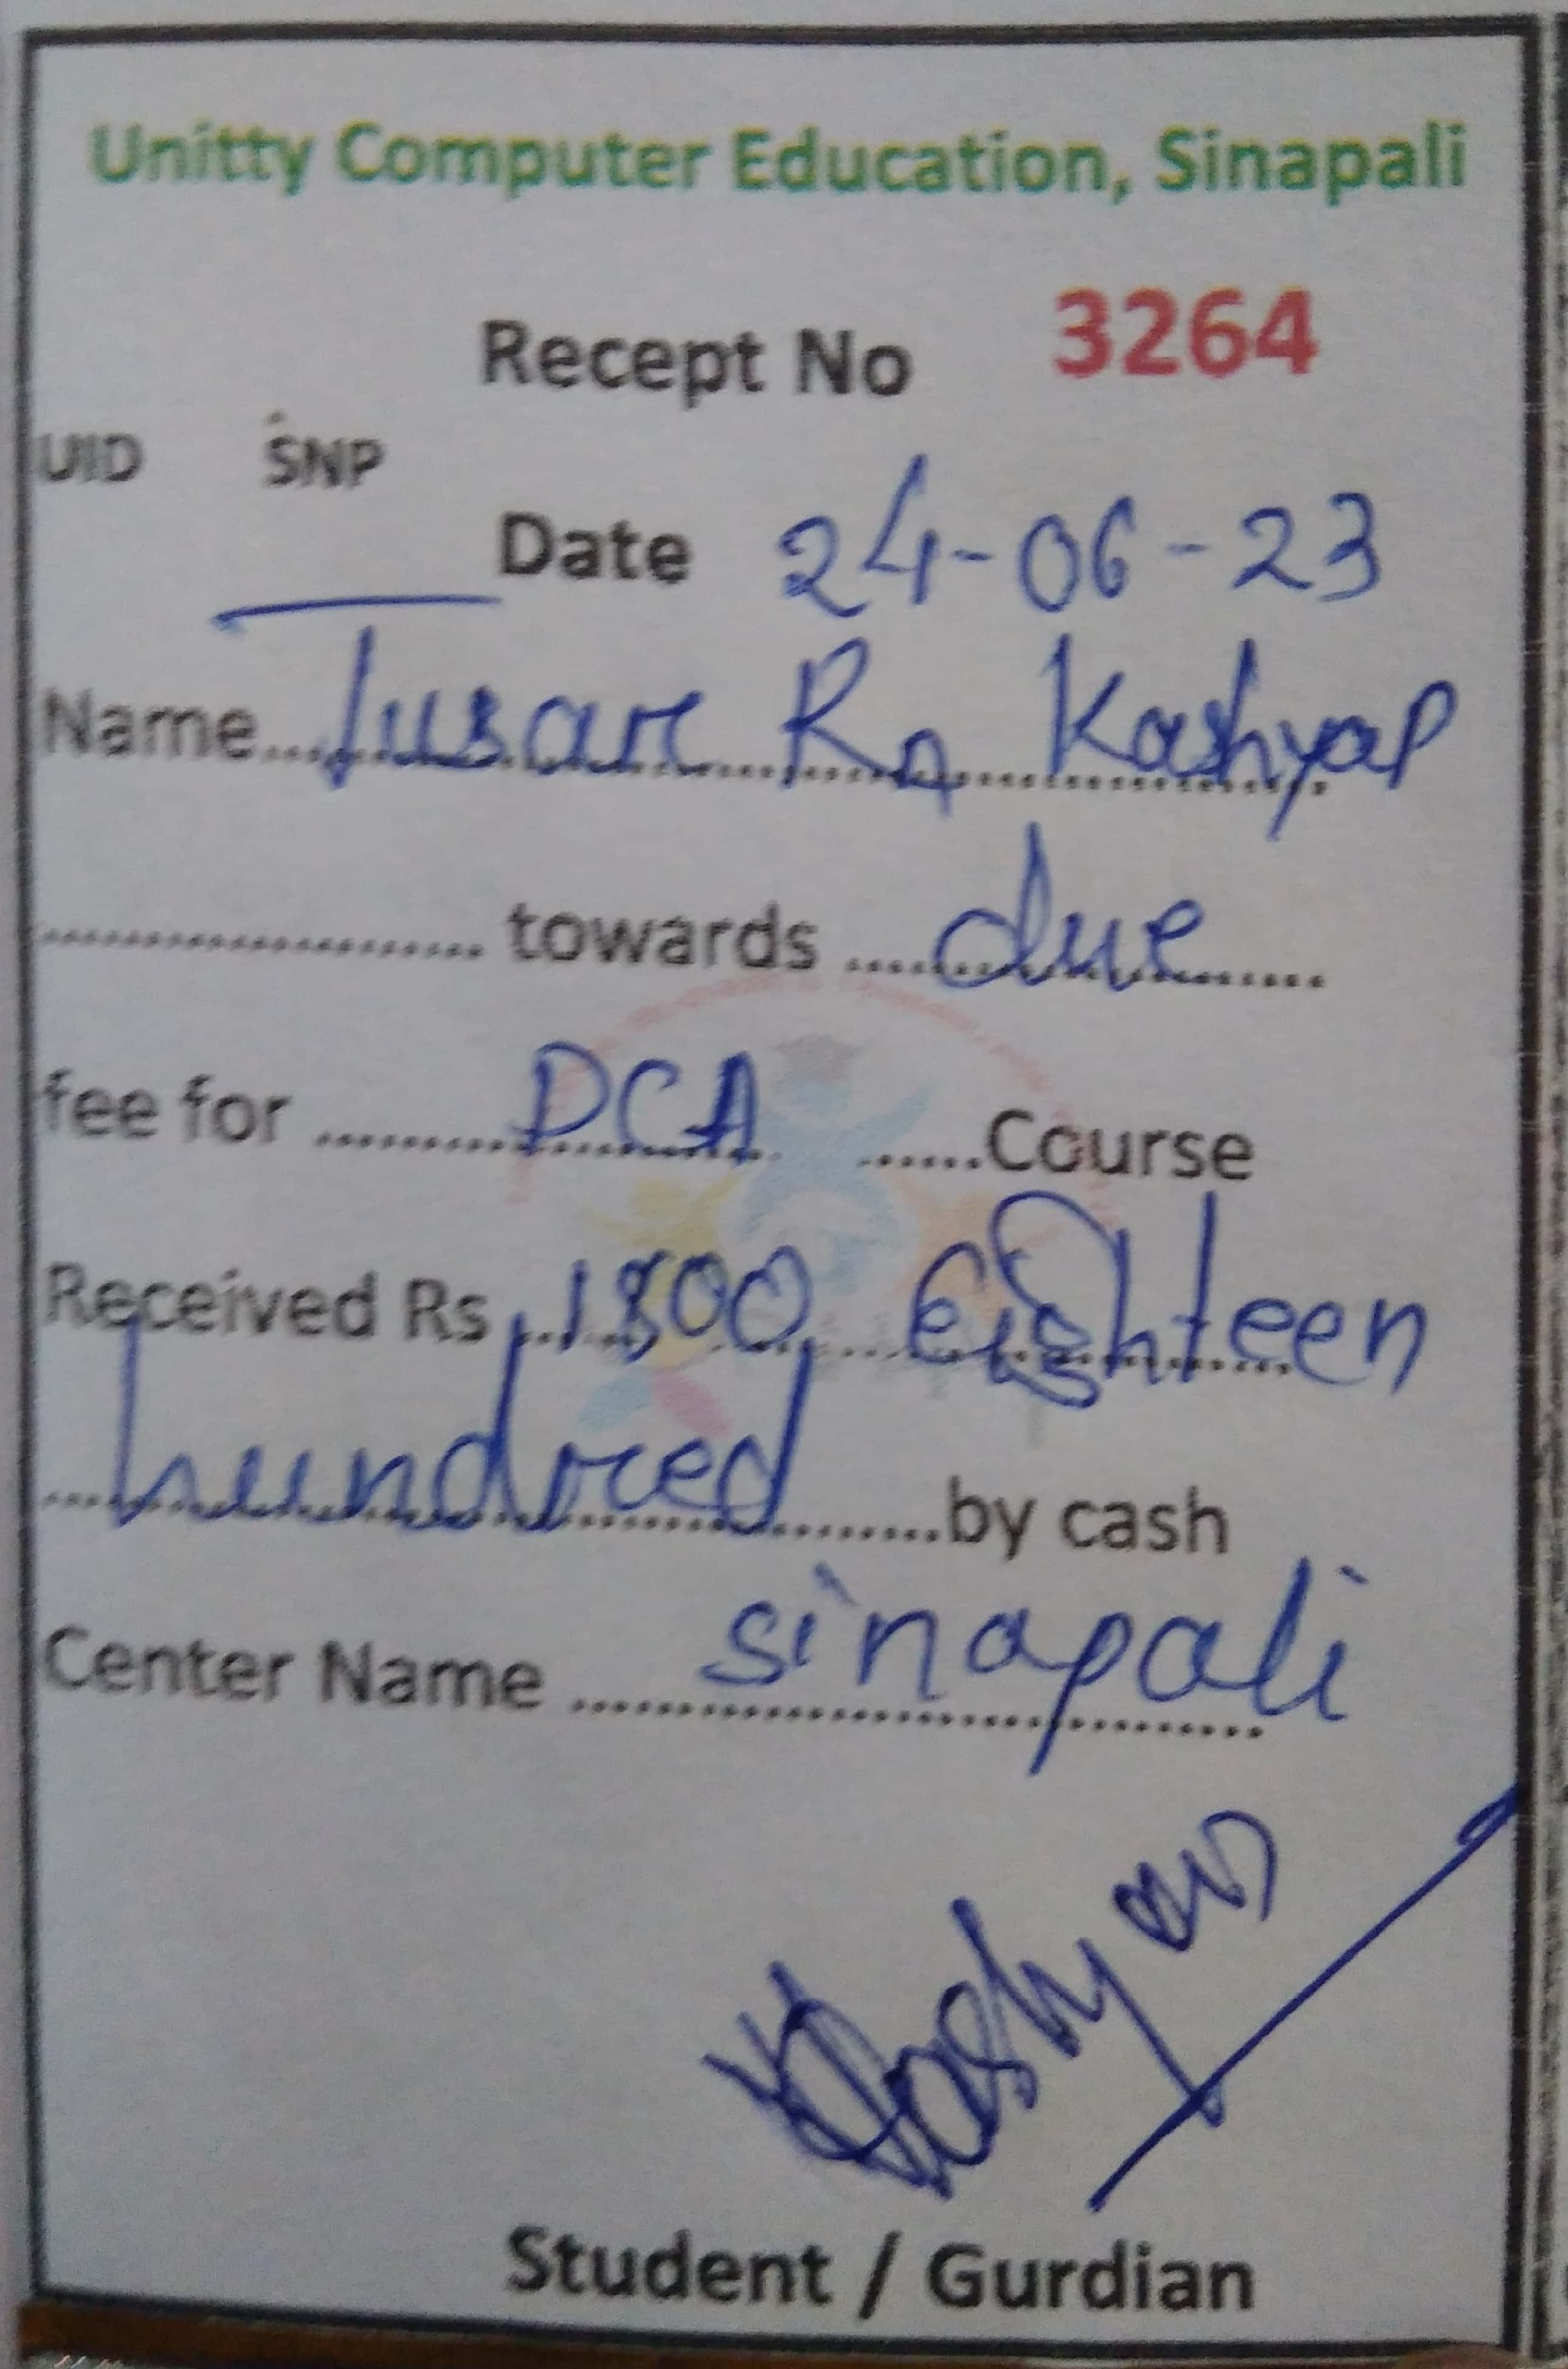 Unitty Computer Education, Sinapali
Recept No 3264
UID SNP
Date 24-06-23
Name....Tusar Rn Kashyap
.................... towards ....due......
fee for .........DCA. ......Course
Received Rs ..1800.....Eighteen
...hundred........by cash
Center Name ....sinapali
Kashyap
Student / Gurdian